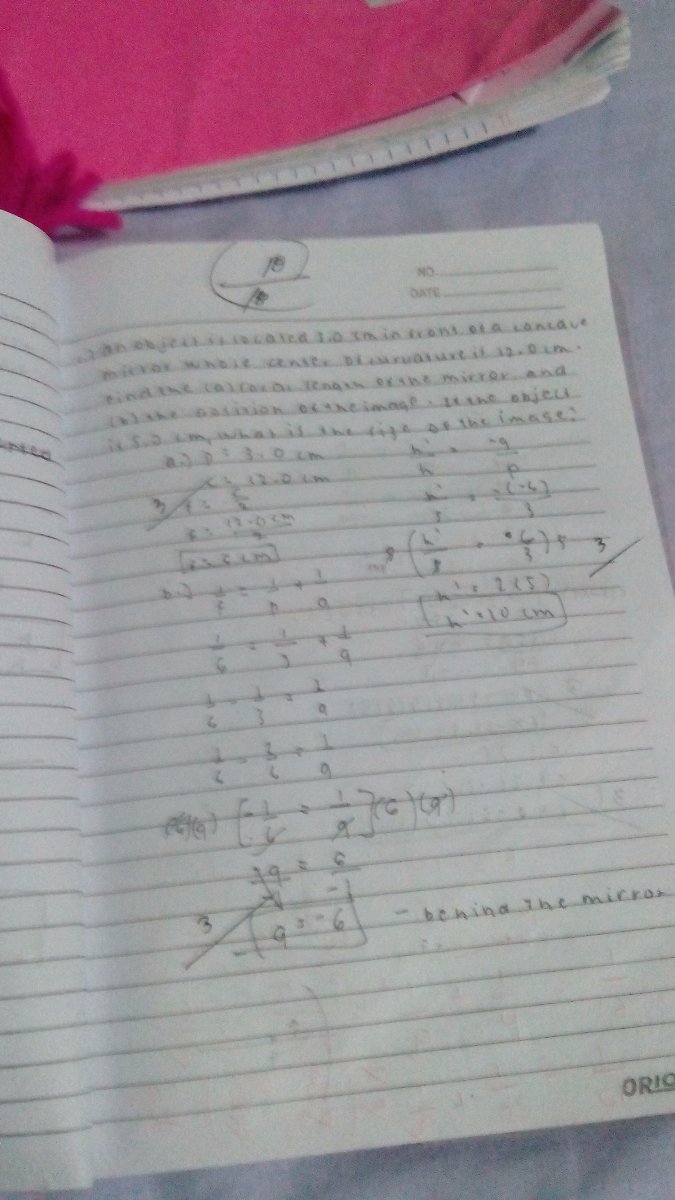 NO.
DATE
1.) An object is located 3.0 cm in front of a concave
mirror whose center of curvature is 12.0 cm.
Find the (a) focal length of the mirror and
(b) the position of the image. If the object
is 5.0 cm, what is the size of the image?
a.) p = 3.0 cm
c = 12.0 cm
f = c/2
f = 12.0 cm/2
f = 6 cm
3
b.) 1/f = 1/p + 1/q
1/6 = 1/3 + 1/q
1/6 - 1/3 = 1/q
1/6 - 2/6 = 1/q
(6)(q) [-1/6 = 1/q] (6)(q)
-q = 6
-1
q = -6 - behind the mirror
3
h'/h = -q/p
h'/5 = -(-6)/3
5 (h'/5 = 6/3) 5
3
h' = 2(5)
h' = 10 cm
ORIO